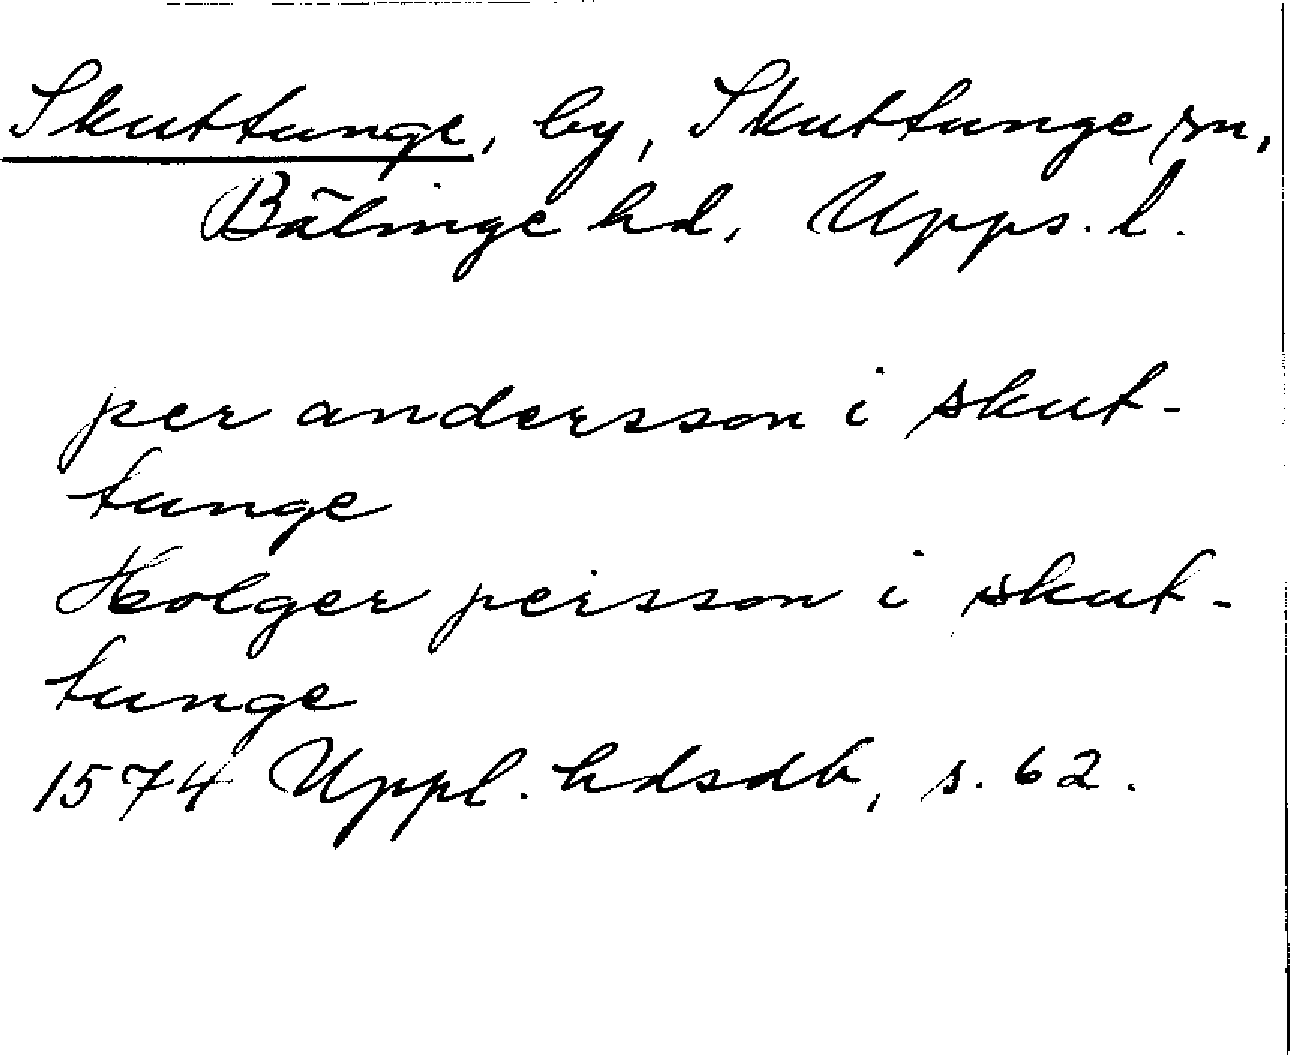 Skuttunge, by, Skuttunge sn,
Bälinge hd, Upps. l.
per andersson i skut-
tunge
Holger persson i skut-
tunge
1574 Uppl. hdsdb, s. 62.